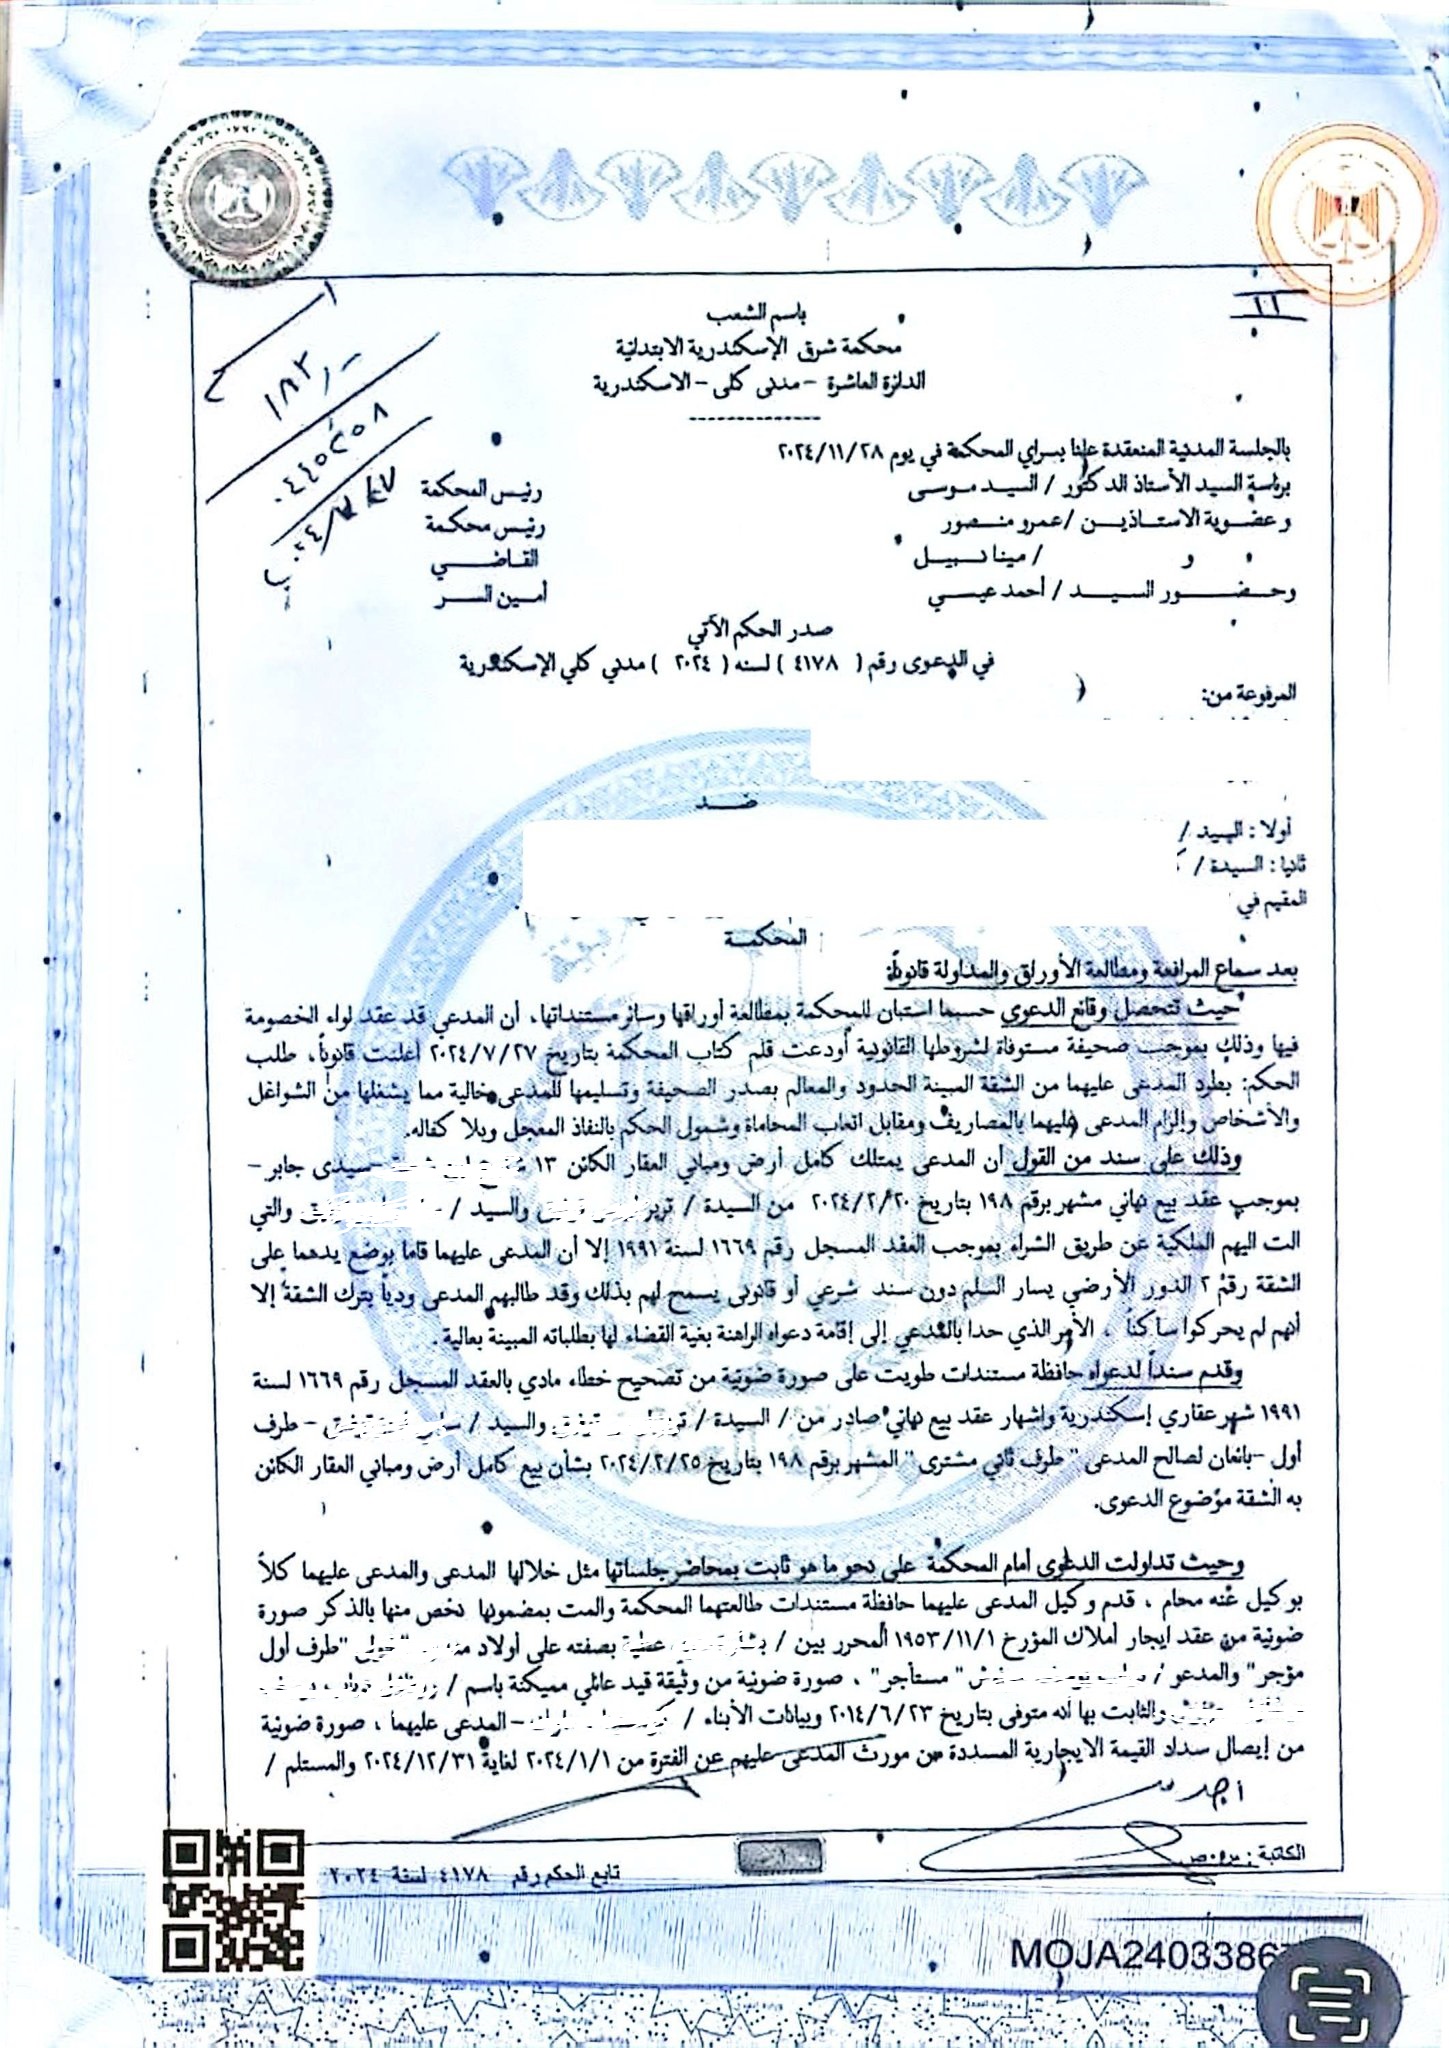 ١١
باسم الشعب
محكمة شرق الإسكندرية الابتدائية
الدائرة العاشرة – مدني كلى – الاسكندرية
بالجلسة المدنية المنعقدة علنا بسراي المحكمة في يوم ٢٠٢٤/١١/٢٨
برئاسة السيد الأستاذ الدكتور / السيد موسى رئيس المحكمة
وعضوية الاستاذين / عمرو منصور رئيس محكمة
و / مينا نبيل القاضي
وحضور السيد / أحمد عيسي أمين السر
صدر الحكم الآتي
في الدعوى رقم ( ٤١٧٨ ) لسنه ( ٢٠٢٤ ) مدني كلي الإسكندرية
المرفوعة من:
ضد
أولا : السيد /
ثانيا : السيدة /
المقيم في
المحكمة
بعد سماع المرافعة ومطالعة الأوراق والمداولة قانوناً:
حيث تتحصل وقائع الدعوى حسبما استبان للمحكمة بمطالعة أوراقها وسائر مستنداتها، أن المدعي قد عقد لواء الخصومة
فيها وذلك بموجب صحيفة مستوفاة لشروطها القانونية أودعت قلم كتاب المحكمة بتاريخ ٢٠٢٤/٧/٢٧ أعلنت قانوناً، طلب
الحكم: بطرد المدعى عليهما من الشقة المبينة الحدود والمعالم بصدر الصحيفة وتسليمها للمدعى خالية مما يشغلها من الشواغل
والأشخاص وإلزام المدعى عليهما بالمصاريف ومقابل اتعاب المحاماة وشمول الحكم بالنفاذ المعجل وبلا كفاله.
وذلك على سند من القول أن المدعى يمتلك كامل أرض ومباني العقار الكائن ١٣ –سيدى جابر–
بموجب عقد بيع نهائي مشهر برقم ١٩٨ بتاريخ ٢٠٢٤/٢/٢٠ من السيدة / والسيد / والتي
الت اليهم الملكية عن طريق الشراء بموجب العقد المسجل رقم ١٦٦٩ لسنة ١٩٩١ إلا أن المدعى عليهما قاما بوضع يدهما على
الشقة رقم ٢ الدور الأرضي يسار السلم دون سند شرعي أو قانونى يسمح لهم بذلك وقد طالبهم المدعى ودياً بترك الشقة إلا
أنهم لم يحركوا ساكناً ، الأمر الذي حدا بالمدعي إلى إقامة دعواه الراهنة بغية القضاء لها بطلباته المبينة بعالية .
وقدم سنداً لدعواه حافظة مستندات طويت على صورة ضوئية من تصحيح خطاء مادي بالعقد المسجل رقم ١٦٦٩ لسنة
١٩٩١ شهر عقاري إسكندرية واشهار عقد بيع نهائي صادر من / السيدة / والسيد / – طرف
أول –بائعان لصالح المدعى " طرف ثاني مشترى " المشهر برقم ١٩٨ بتاريخ ٢٠٢٤/٢/٢٥ بشأن بيع كامل أرض ومباني العقار الكائن
به الشقة موضوع الدعوى.
وحيث تداولت الدعوى أمام المحكمة على نحو ما هو ثابت بمحاضر جلساتها مثل خلالها المدعى والمدعى عليهما كلاً
بوكيل عنه محام ، قدم وكيل المدعى عليهما حافظة مستندات طالعتهما المحكمة والمت بمضمونها نخص منها بالذكر صورة
ضوئية من عقد ايجار أملاك المؤرخ ١٩٥٣/١١/١ المحرر بين / عطية بصفته على أولاد "طرف أول
مؤجر" والمدعو / " مستأجر" ، صورة ضوئية من وثيقة قيد عائلي مميكنة باسم /
والثابت بها أنه متوفى بتاريخ ٢٠١٤/٦/٢٣ وبيانات الأبناء / –المدعى عليهما ، صورة ضوئية
من إيصال سداد القيمة الايجارية المسددة من مورث المدعى عليهم عن الفترة من ٢٠٢٤/١/١ لغاية ٢٠٢٤/١٢/٣١ والمستلم /
الكاتبة :
تابع الحكم رقم ٤١٧٨ لسنة ٢٠٢٤